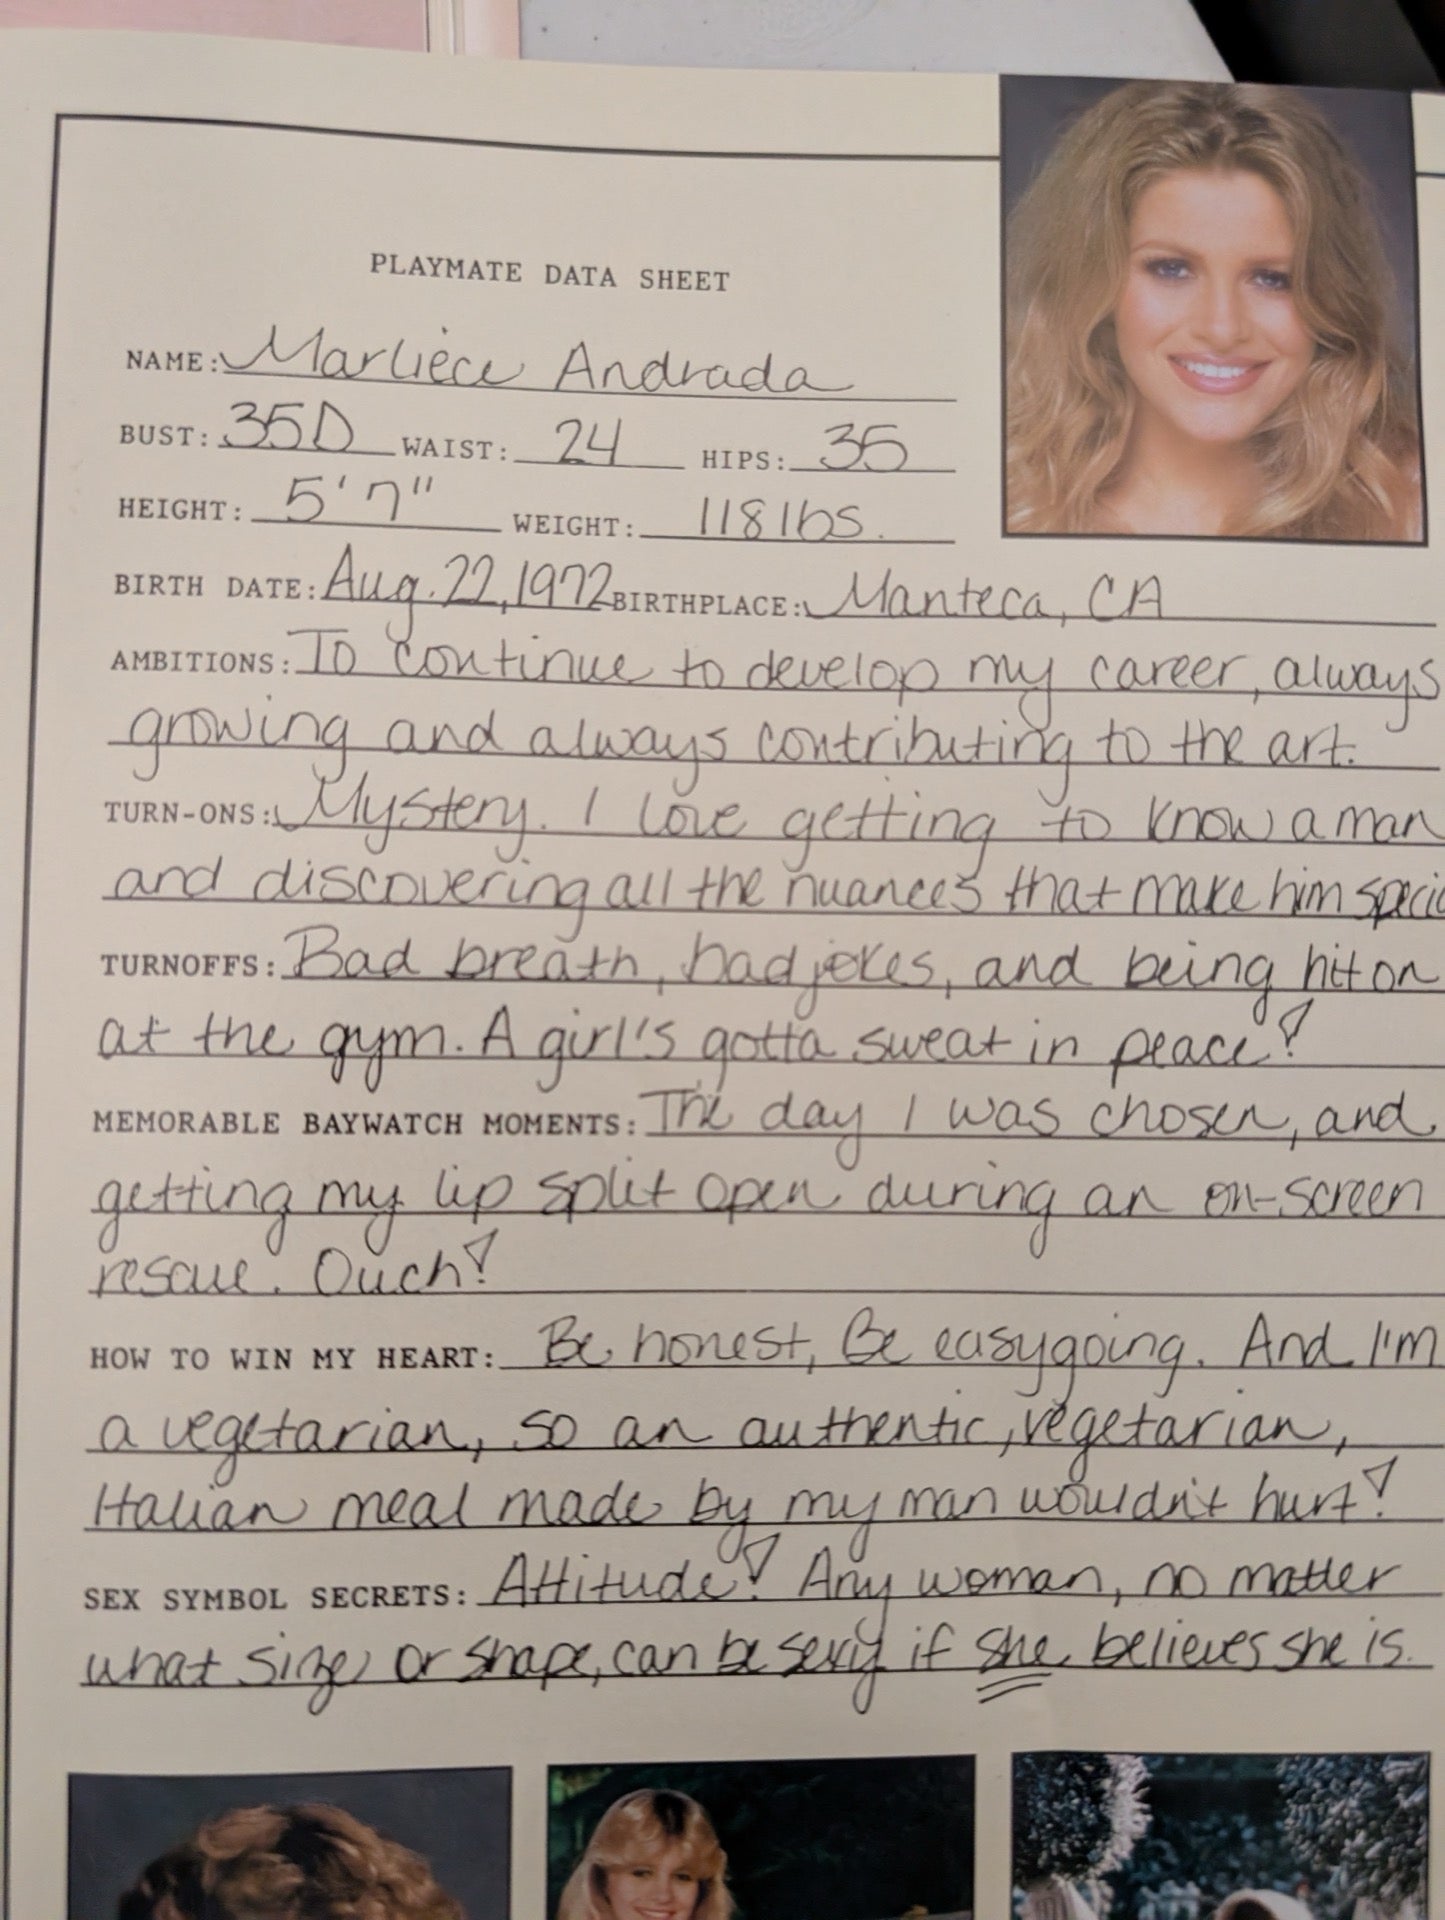 PLAYMATE DATA SHEET
NAME: Marliece Andrada
BUST: 35D WAIST: 24 HIPS: 35
HEIGHT: 5'7" WEIGHT: 118 lbs.
BIRTH DATE: Aug. 22, 1972 BIRTHPLACE: Manteca, CA
AMBITIONS: To continue to develop my career, always
growing and always contributing to the art.
TURN-ONS: Mystery. I love getting to know a man
and discovering all the nuances that make him specia
TURNOFFS: Bad breath, bad jokes, and being hit on
at the gym. A girl's gotta sweat in peace!
MEMORABLE BAYWATCH MOMENTS: The day I was chosen, and
getting my lip split open during an on-screen
rescue. Ouch!
HOW TO WIN MY HEART: Be honest, Be easygoing. And I'm
a vegetarian, so an authentic, vegetarian,
Italian meal made by my man wouldn't hurt!
SEX SYMBOL SECRETS: Attitude! Any woman, no matter
what size or shape, can be sexy if she believes she is.